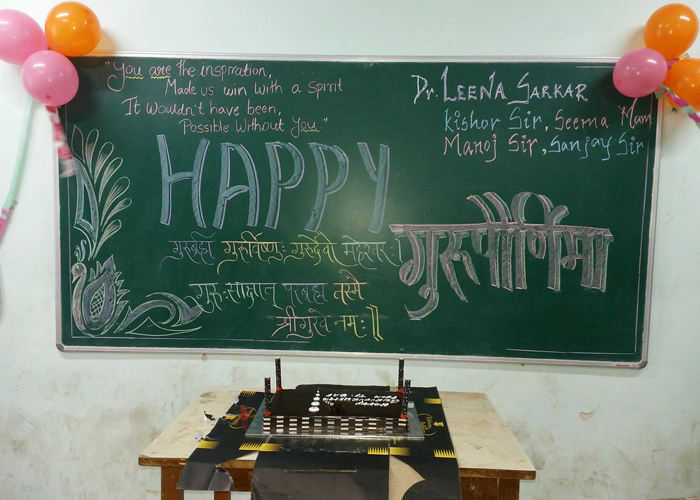 "You are the inspiration,
Made us win with a spirit
It wouldn't have been,
Possible Without You"
Dr. LEENA SARKAR
Kishor Sir, Seema Mam
Manoj Sir, Sanjay Sir
HAPPY
गुरुपौर्णिमा
गुरुर्ब्रह्मा गुरुर्विष्णुः गुरुर्देवो महेश्वरः ।
गुरुः साक्षात् परब्रह्म तस्मै
श्री गुरवे नमः ॥
Happy